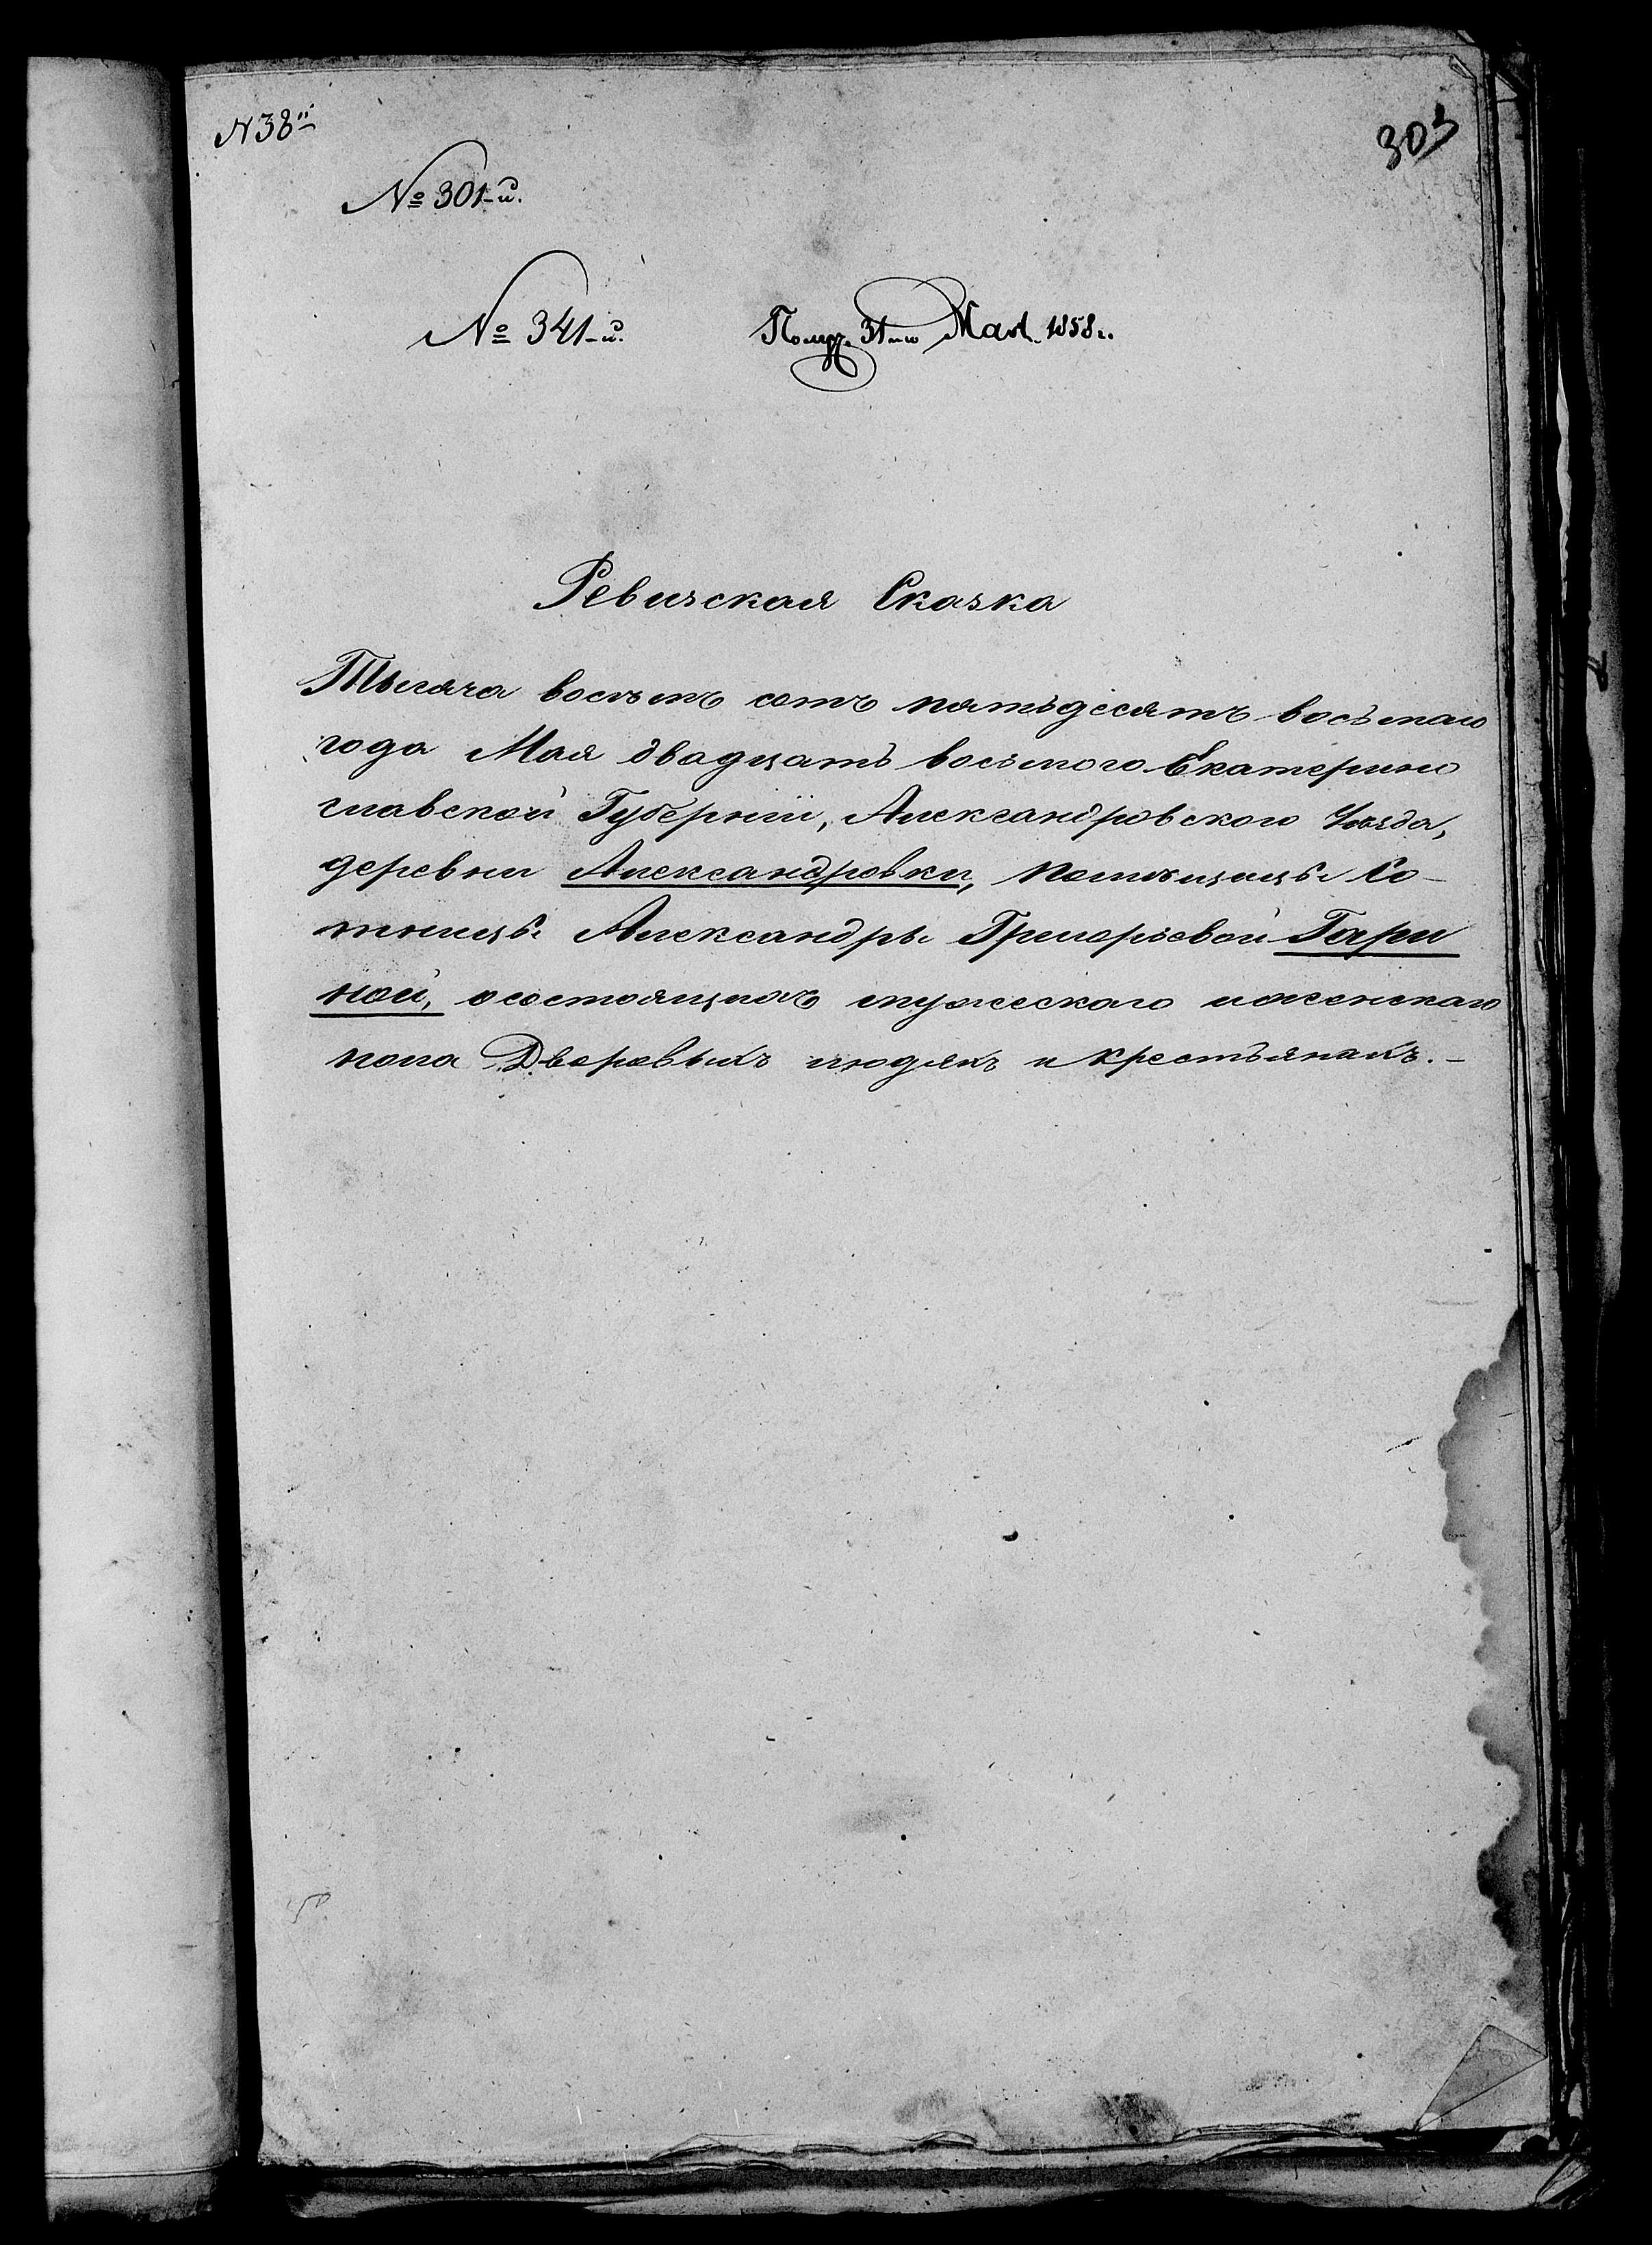 N 38й
303
№ 301-й.
№ 341-й. Получ. 31-го Мая 1858 г.
Ревизская Сказка
Тысяча восемь сотъ пятьдесятъ восьмаго
года Мая двадцать восьмого Екатерино
славской Губерніи, Александровского Уѣзда,
деревни Александровки, помѣщицы Со-
тницы Александры Григорьевой Гари
ной, о состоящихъ мужескаго и женскаго
пола Дворовыхъ людяхъ и крестьянахъ.-